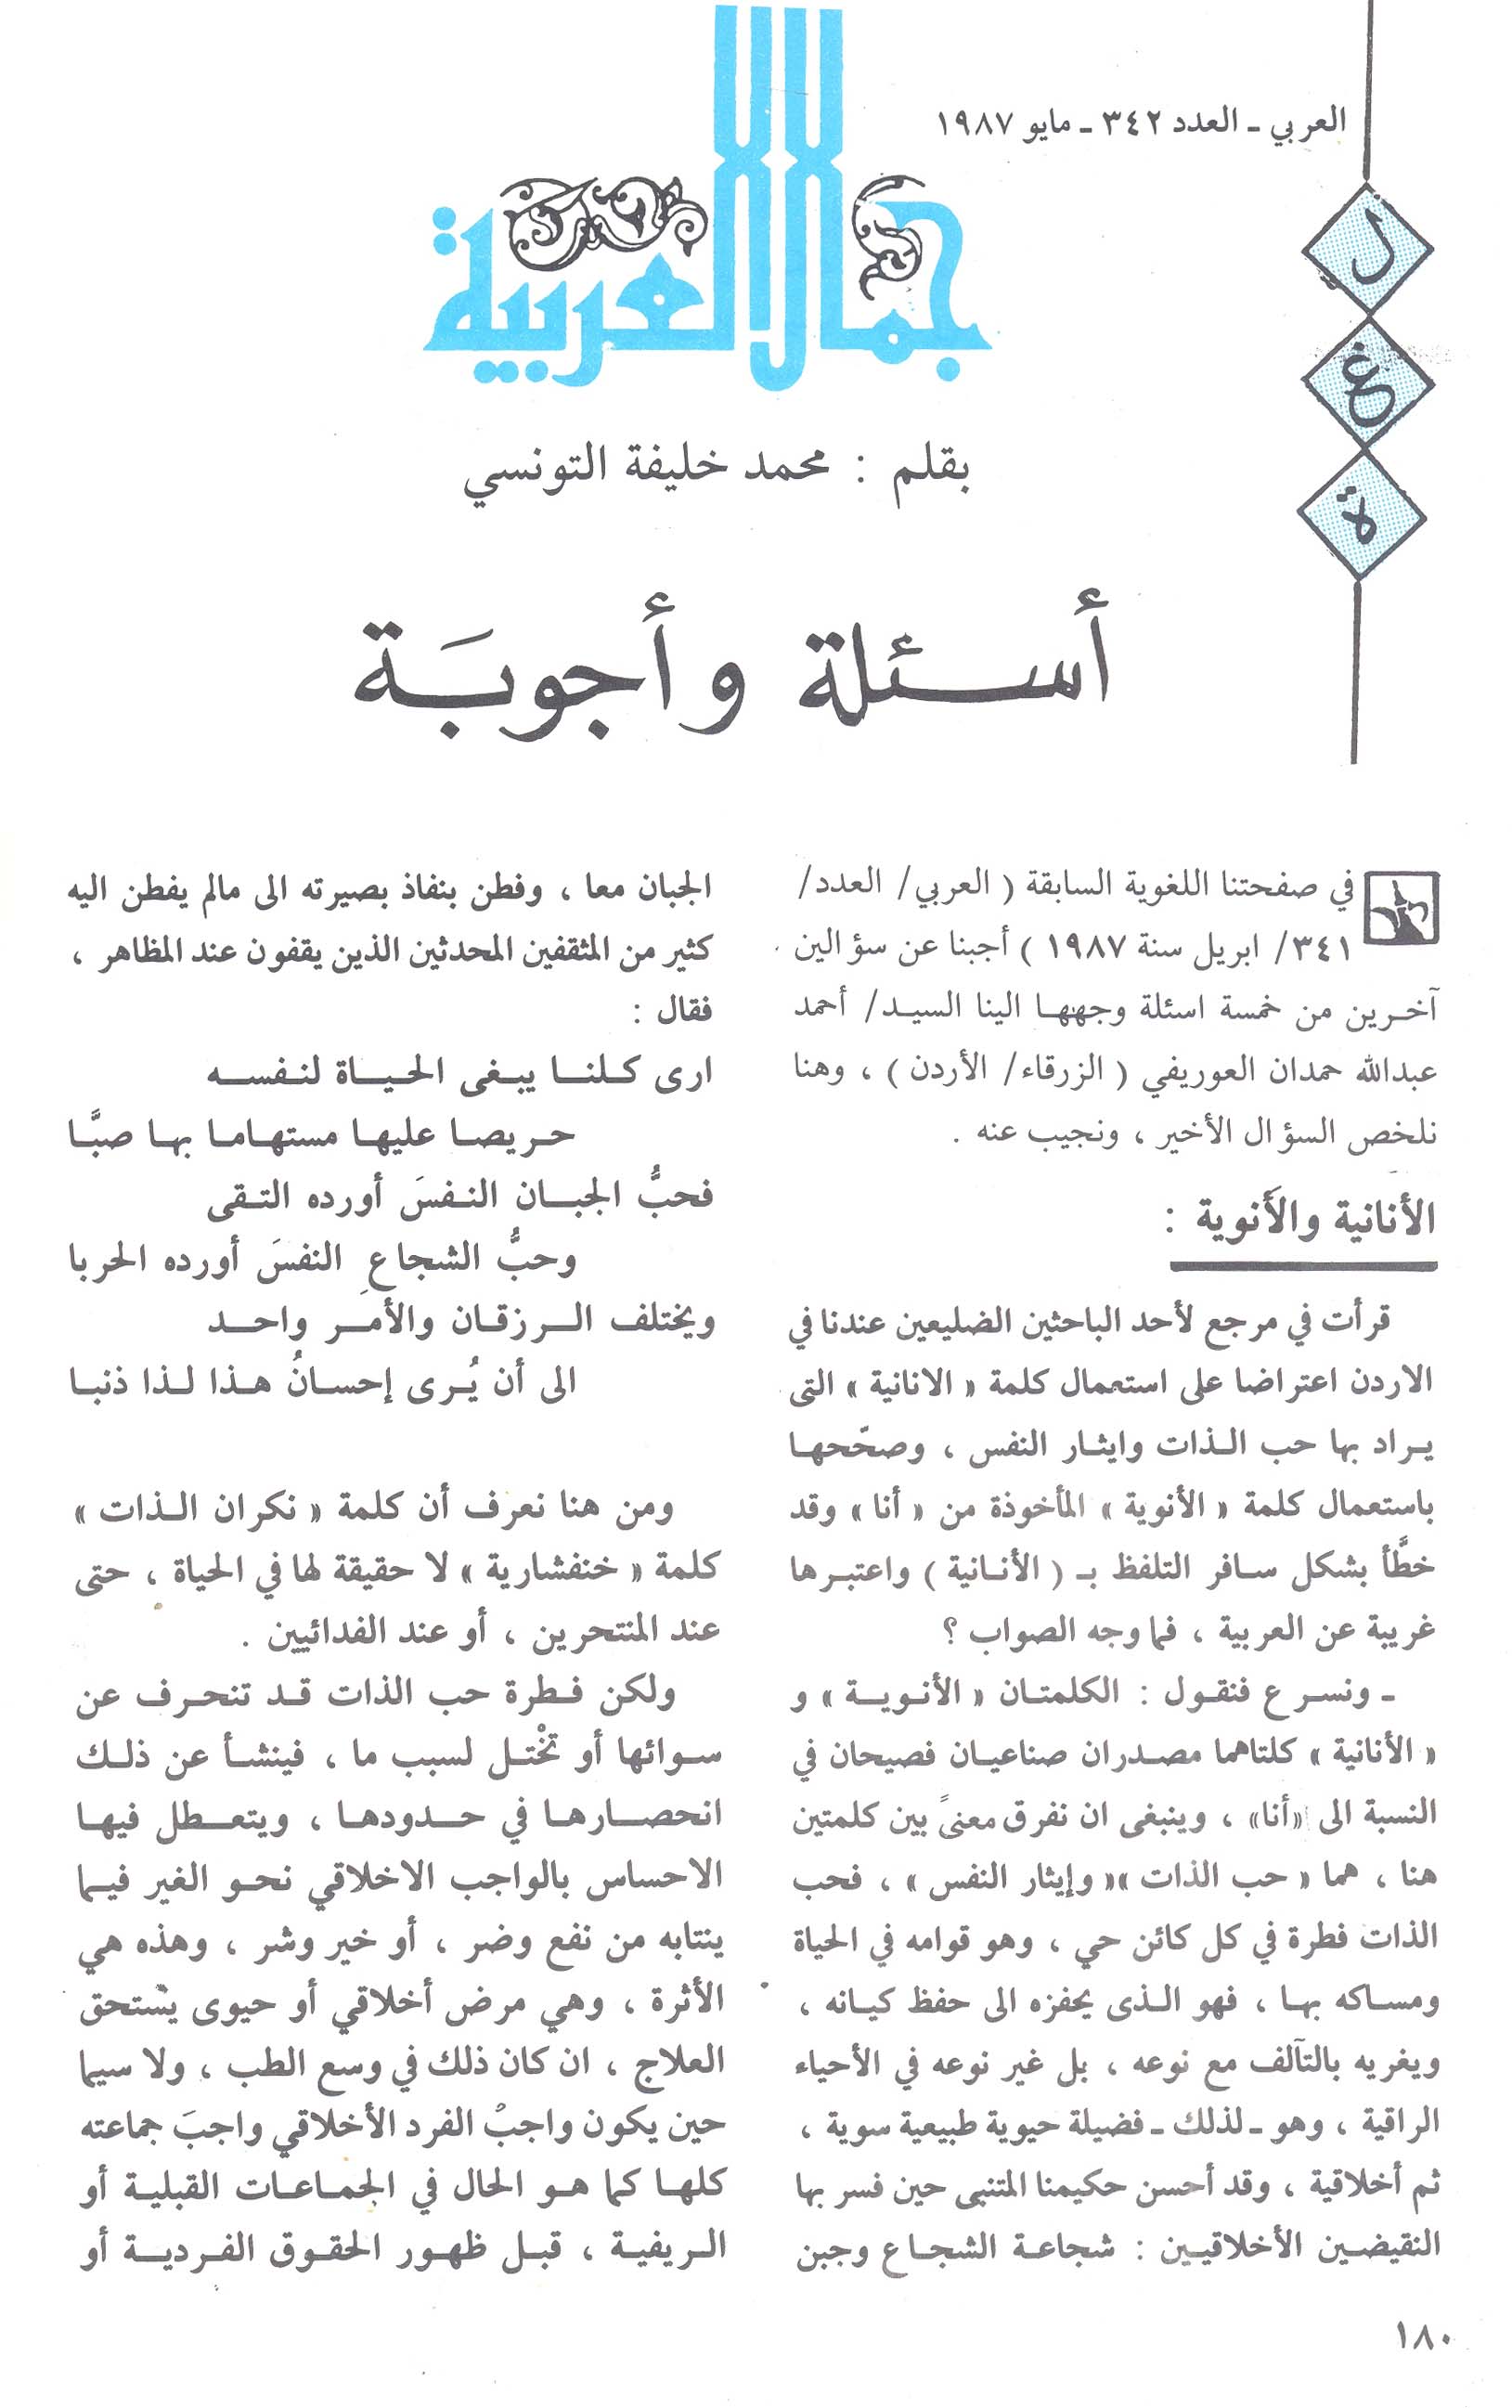 العربي ـ العدد ٣٤٢ ـ مايو ١٩٨٧
ل
غ
ة
جمال العربية
بقلم : محمد خليفة التونسي
أسئلة وأجوبَة
في صفحتنا اللغوية السابقة ( العربي/ العدد/
٣٤١/ ابريل سنة ١٩٨٧ ) أجبنا عن سؤالين
آخرين من خمسة اسئلة وجهها الينا السيد/ أحمد
عبدالله حمدان العوريفي ( الزرقاء/ الأردن ) ، وهنا
نلخص السؤال الأخير ، ونجيب عنه .
الأنانية والأَنوية :
قرأت في مرجع لأحد الباحثين الضليعين عندنا في
الاردن اعتراضا على استعمال كلمة « الانانية » التى
يراد بها حب الذات وايثار النفس ، وصحّحها
باستعمال كلمة « الأنوية » المأخوذة من « أنا » وقد
خطَّأ بشكل سافر التلفظ بـ ( الأنانية ) واعتبرها
غريبة عن العربية ، فما وجه الصواب ؟
ـ ونسرع فنقول : الكلمتان « الأنوية » و
« الأنانية » كلتاهما مصدران صناعيان فصيحان في
النسبة الى «أنا» ، وينبغى ان نفرق معنىً بين كلمتين
هنا ، هما « حب الذات »« وإيثار النفس » ، فحب
الذات فطرة في كل كائن حي ، وهو قوامه في الحياة
ومساكه بها ، فهو الذى يحفزه الى حفظ كيانه ،
ويغريه بالتآلف مع نوعه ، بل غير نوعه في الأحياء
الراقية ، وهو ـ لذلك ـ فضيلة حيوية طبيعية سوية ،
ثم أخلاقية ، وقد أحسن حكيمنا المتنبى حين فسر بها
النقيضين الأخلاقيين : شجاعة الشجاع وجبن
الجبان معا ، وفطن بنفاذ بصيرته الى مالم يفطن اليه
كثير من المثقفين المحدثين الذين يقفون عند المظاهر ،
فقال :
ارى كلنا يبغى الحياة لنفسه
حريصا عليها مستهاما بها صبَّا
فحبُّ الجبان النفسَ أورده التقى
وحبُّ الشجاعِ النفسَ أورده الحربا
ويختلف الرزقان والأمر واحد
الى أن يُرى إحسانُ هذا لذا ذنبا
ومن هنا نعرف أن كلمة « نكران الذات »
كلمة « خنفشارية » لا حقيقة لها في الحياة ، حتى
عند المنتحرين ، أو عند الفدائيين .
ولكن فطرة حب الذات قد تنحرف عن
سوائها أو تخْتل لسبب ما ، فينشأ عن ذلك
انحصارها في حدودها ، ويتعطل فيها
الاحساس بالواجب الاخلاقي نحو الغير فيما
ينتابه من نفع وضر ، أو خير وشر ، وهذه هي
الأثرة ، وهي مرض أخلاقي أو حيوى يستحق
العلاج ، ان كان ذلك في وسع الطب ، ولا سيما
حين يكون واجبُ الفرد الأخلاقي واجبَ جماعته
كلها كما هو الحال في الجماعات القبلية أو
الريفية ، قبل ظهور الحقوق الفردية أو
١٨٠